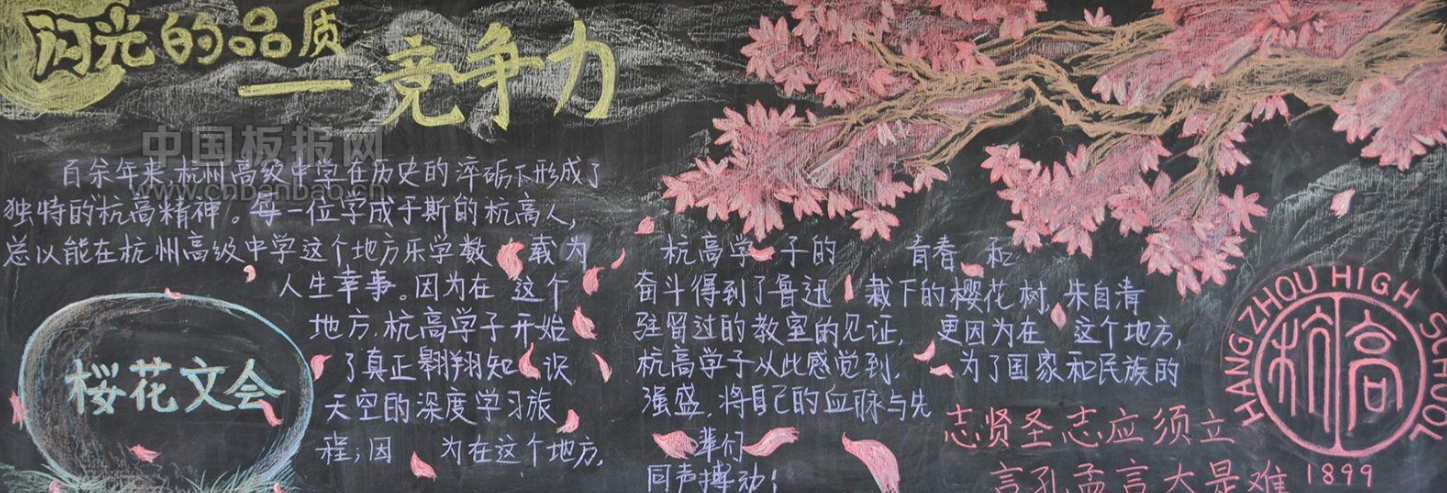 闪光的品质
——竞争力
中国板报网
www.cnbanbao.cn
百余年来，杭州高级中学在历史的淬砺下形成了
独特的杭高精神。每一位学成于斯的杭高人，
总以能在杭州高级中学这个地方乐学数载为
人生幸事。因为在这个
地方，杭高学子开始
了真正翱翔知识
天空的深度学习旅
程；因为在这个地方，
杭高学子的青春和
奋斗得到了鲁迅栽下的樱花树，朱自清
驻留过的教室的见证，更因为在这个地方，
杭高学子从此感觉到，为了国家和民族的
强盛，将自己的血脉与先
辈们
同声搏动！
樱花文会
志贤圣志应须立
言孔孟言大是难
HANGZHOU HIGH SCHOOL
杭高
1899